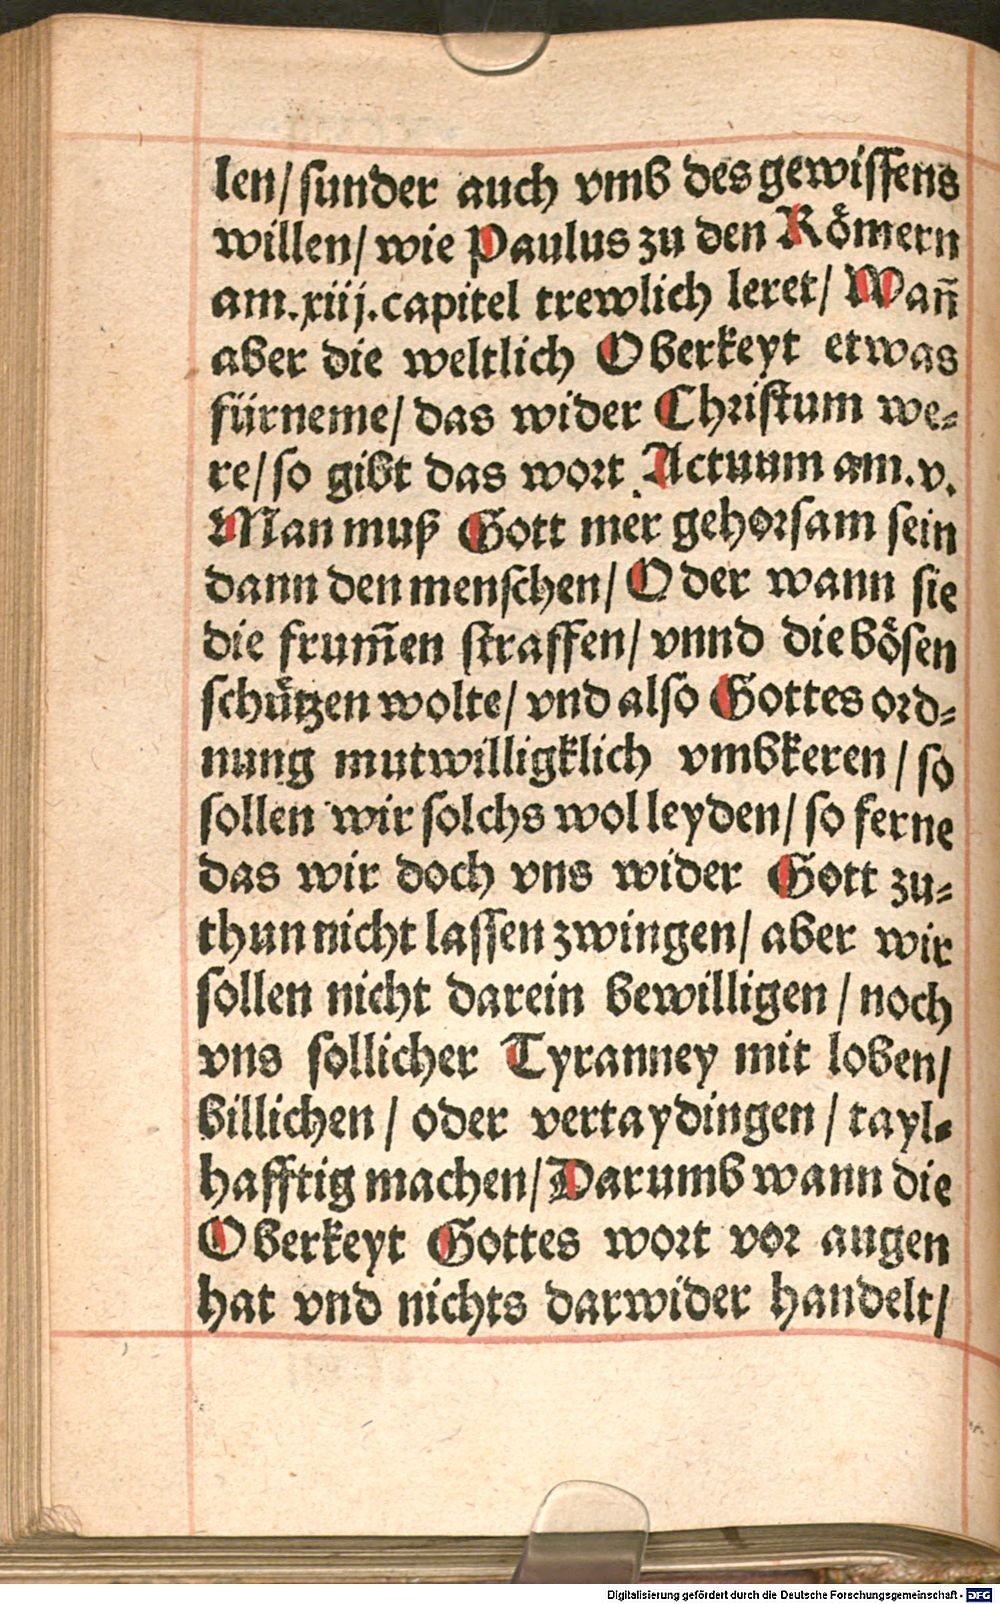 len/ sunder auch vmb des gewissens
willen/ wie Paulus zu den Rômern
am.xiij.capitel trewlich leret/ Wañ
aber die weltlich Oberkeyt etwas
fürneme/ das wider Christum we⸗
re/ so gibt das wort Actuum am.v.
Man muß Gott mer gehorsam sein
dann den menschen/ Oder wann sie
die frum̃en straffen/ vnnd die bôsen
schützen wolte/ vnd also Gottes ord⸗
nung mutwilligklich vmbkeren/ so
sollen wir solchs wol leyden/ so ferne
das wir doch vns wider Gott zu⸗
thun nicht lassen zwingen/ aber wir
sollen nicht darein bewilligen/ noch
vns sollicher Tyranney mit loben/
billichen/ oder vertaydingen/ tayl⸗
hafftig machen/ Darumb wann die
Oberkeyt Gottes wort vor augen
hat vnd nichts darwider handelt/
Digitalisierung gefördert durch die Deutsche Forschungsgemeinschaft - DFG